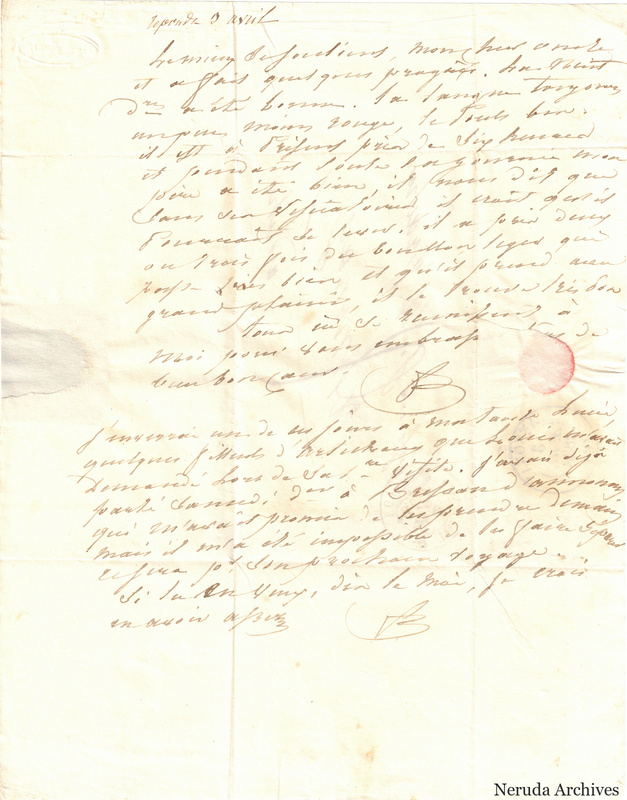 répondu 3 avril
Le mieux se soutient, mon cher oncle
et a fait quelques progrès. La nuit
dre a été bonne. La langue toujours
un peu moins rouge, le pouls bon.
il est à présent près de six heures
et pendant toute la journée mon
père a été bien, il nous dit que
sans ses vésicatoires il croit qu'il
pourrait se lever. il a pris deux
ou trois fois du bouillon léger qui
passe très bien et qu'il prend avec
grand plaisir, il le trouve très bon
tous ici se réunissent à
moi pour vous embrasser de
bien bon cœur.
J'enverrai un de ces jours à ma tante
quelques d'artichaux que Louis m'avait
demandé lors de sa visite. J'avais déjà
parlé samedi à Brisson d'annonay
qui m'avait promis de les prendre demain
mais il m'a été impossible de les faire
ce sera pr son prochain voyage.
Si tu en veux, dis le moi, je crois
en avoir assez
Neruda Archives